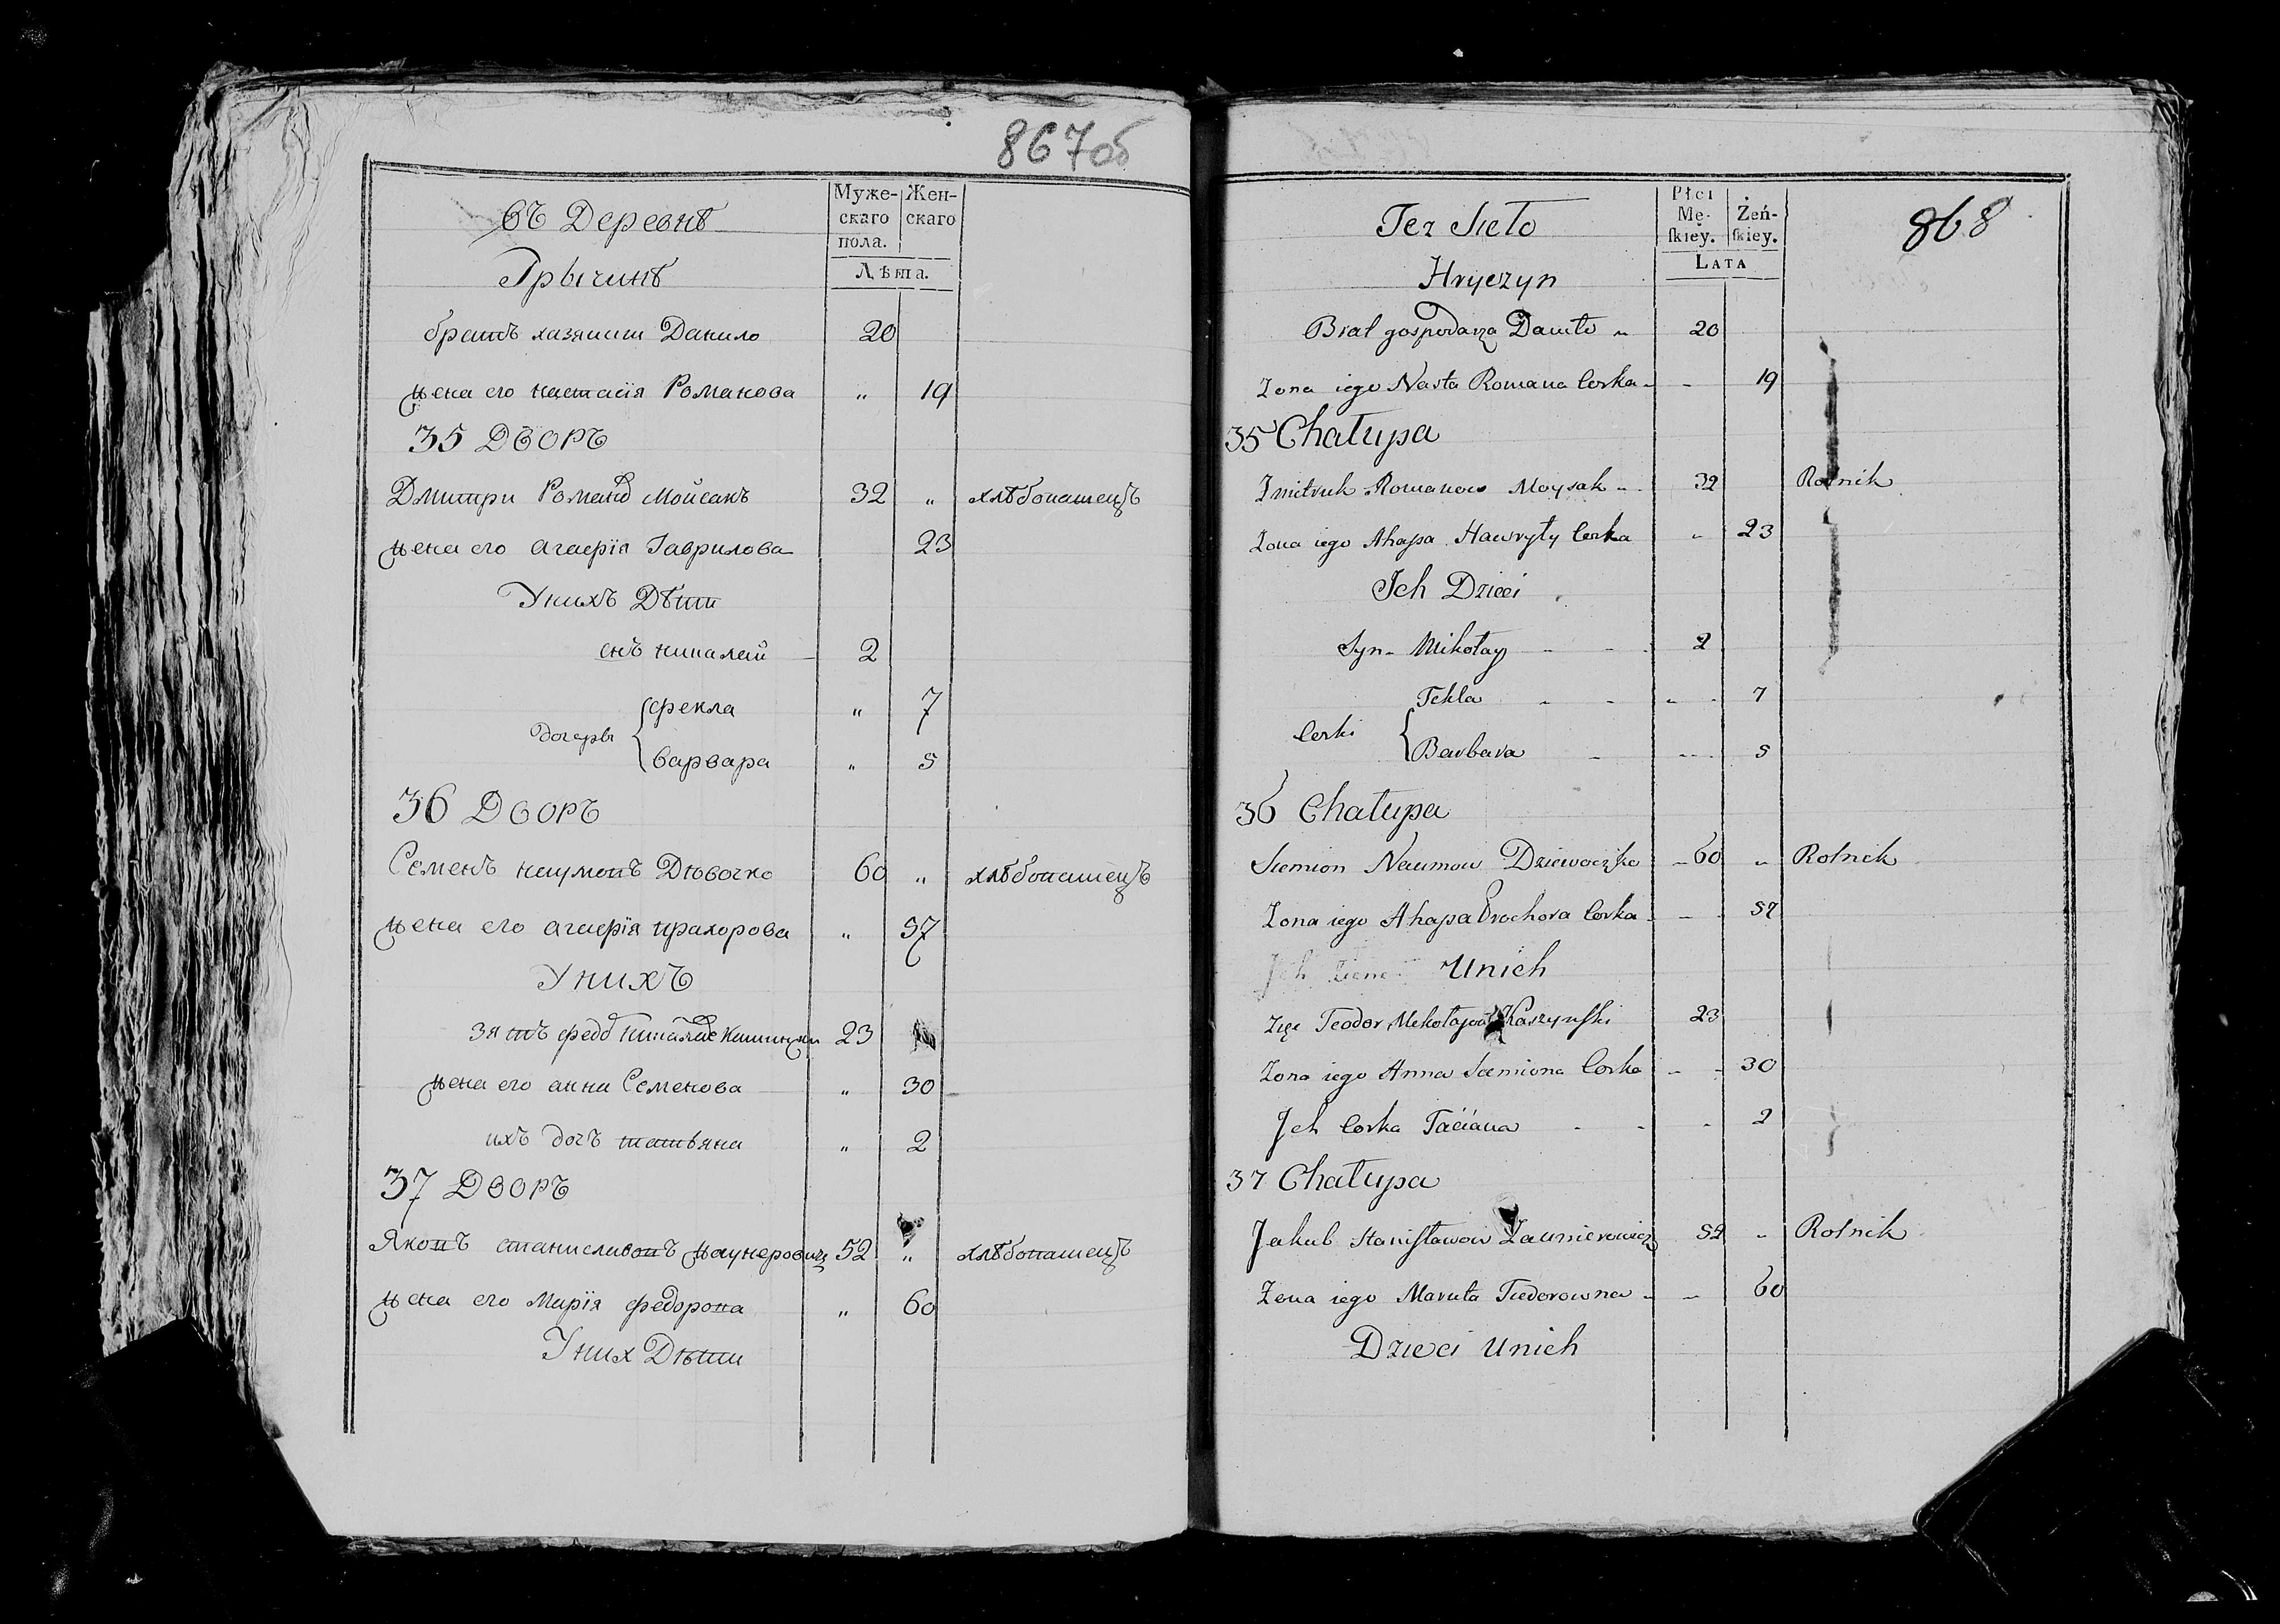 867об
Муже-
скаго
пола.
Жен-
скаго
Лѣта.
въ Деревнѣ
Грычинѣ
братъ хазяини Данило 20
жена его настасія Романова " 19
35 Дворъ
Дмитри Романо Мойсакъ 32 " хлѣбопашецъ
жена его агафія Гаврилова 23
Унихъ Дѣти
снъ никалай 2
фекла " 7
дочеры
варвара " 5
36 Дворъ
Семенъ наумовъ Дѣвочко 60 " хлѣбопашецъ
жена его агафія прахорова " 57
Унихъ
зятъ федо 23
жена его анна Семенова " 30
ихъ дочъ татьяна " 2
37 Дворъ
Яковъ станиславовъ жаунеровичъ 52 " хлѣбопашецъ
жена его Марія федорова " 60
Уних Дѣти
868
Płci
Mę-
skiey.
Żeń-
skiey.
LATA
Tez Sieło
Hryczyn
Brat gospodarza Daniło " 20
Zona iego Nasta Romana Corka - - 19
35 Chałupa
Zmitruk Romanow Moysak - 32 Rolnik
Zona iego Ahapa Hawryły Corka " 23
Ich Dzieci
Syn - Mikołay - - - 2
Tekla - - - - 7
Corki
Barbara - - - 5
36 Chałupa
Siemion Naumow Dziewoczko - 60 " Rolnik
Zona iego Ahapa Prochora Corka - - 57
Unich
Zięc Teodor Mikołajow Kaszynski 23
Zona iego Anna Siemiona Corka - - 30
Ich Corka Taciana - - - 2
37 Chałupa
Jakub Stanisławow Zaunierowicz 52 " Rolnik
Zona iego Maruta Fiedorowna - - 60
Dzieci Unich